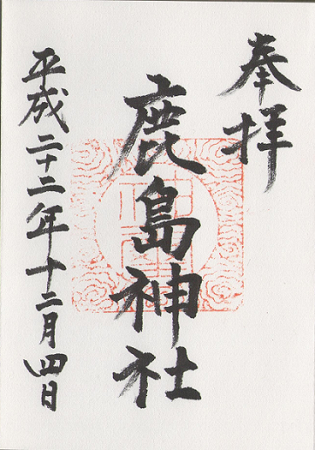 奉拝
鹿島神社
平成二十二年十二月四日